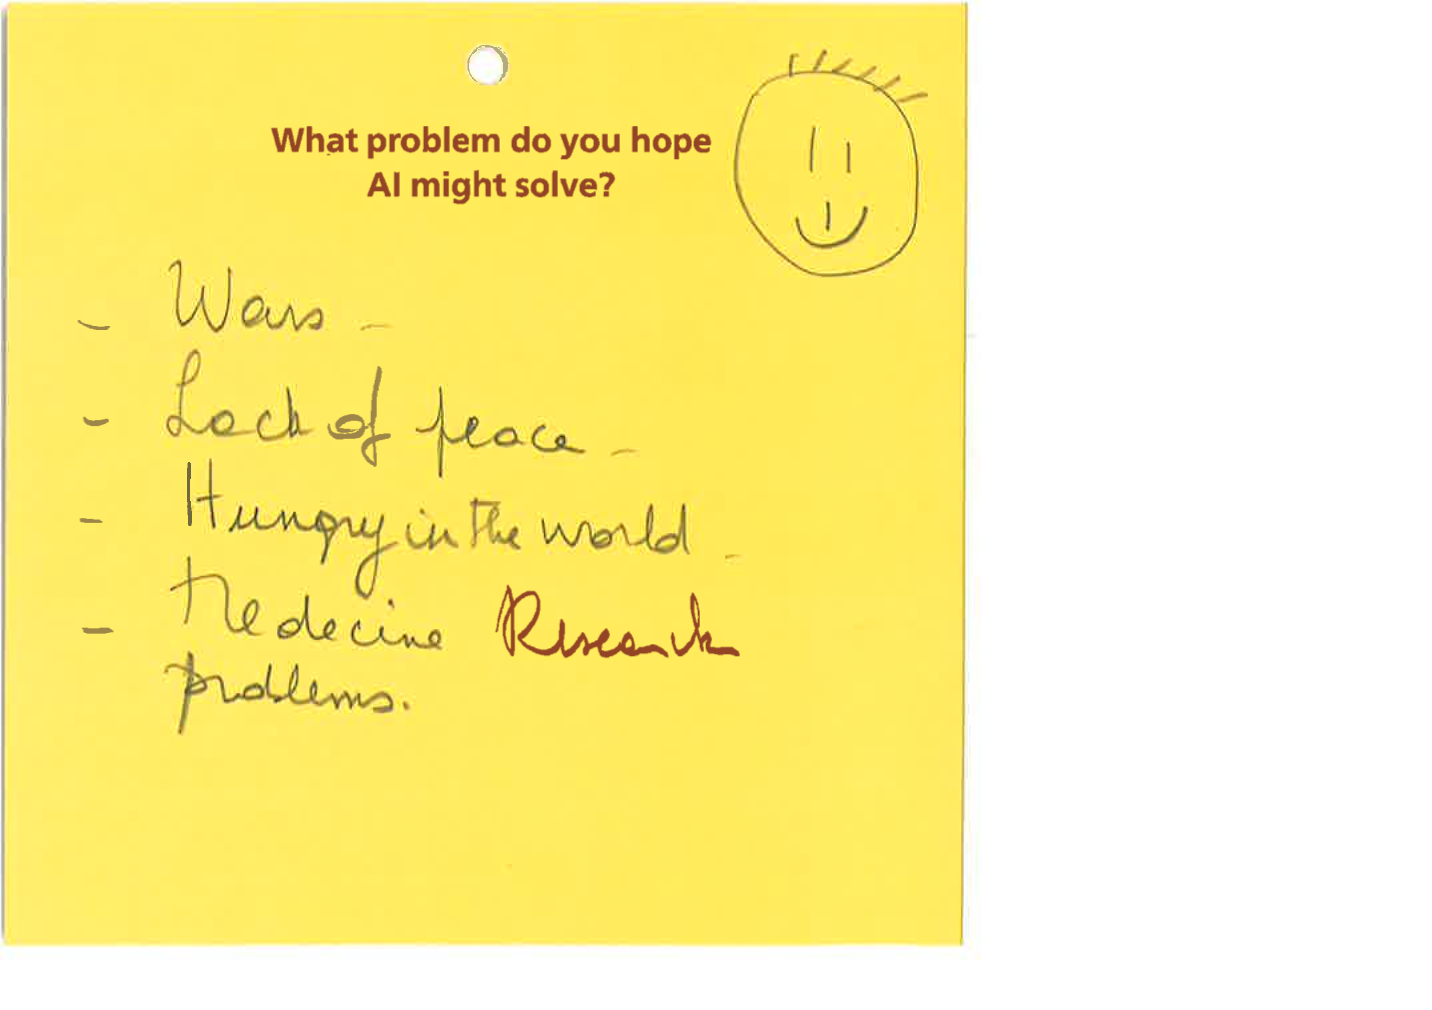 What problem do you hope
AI might solve?
- Wars -
- Lack of peace -
- Hungry in the world -
- Medecine Research
problems.